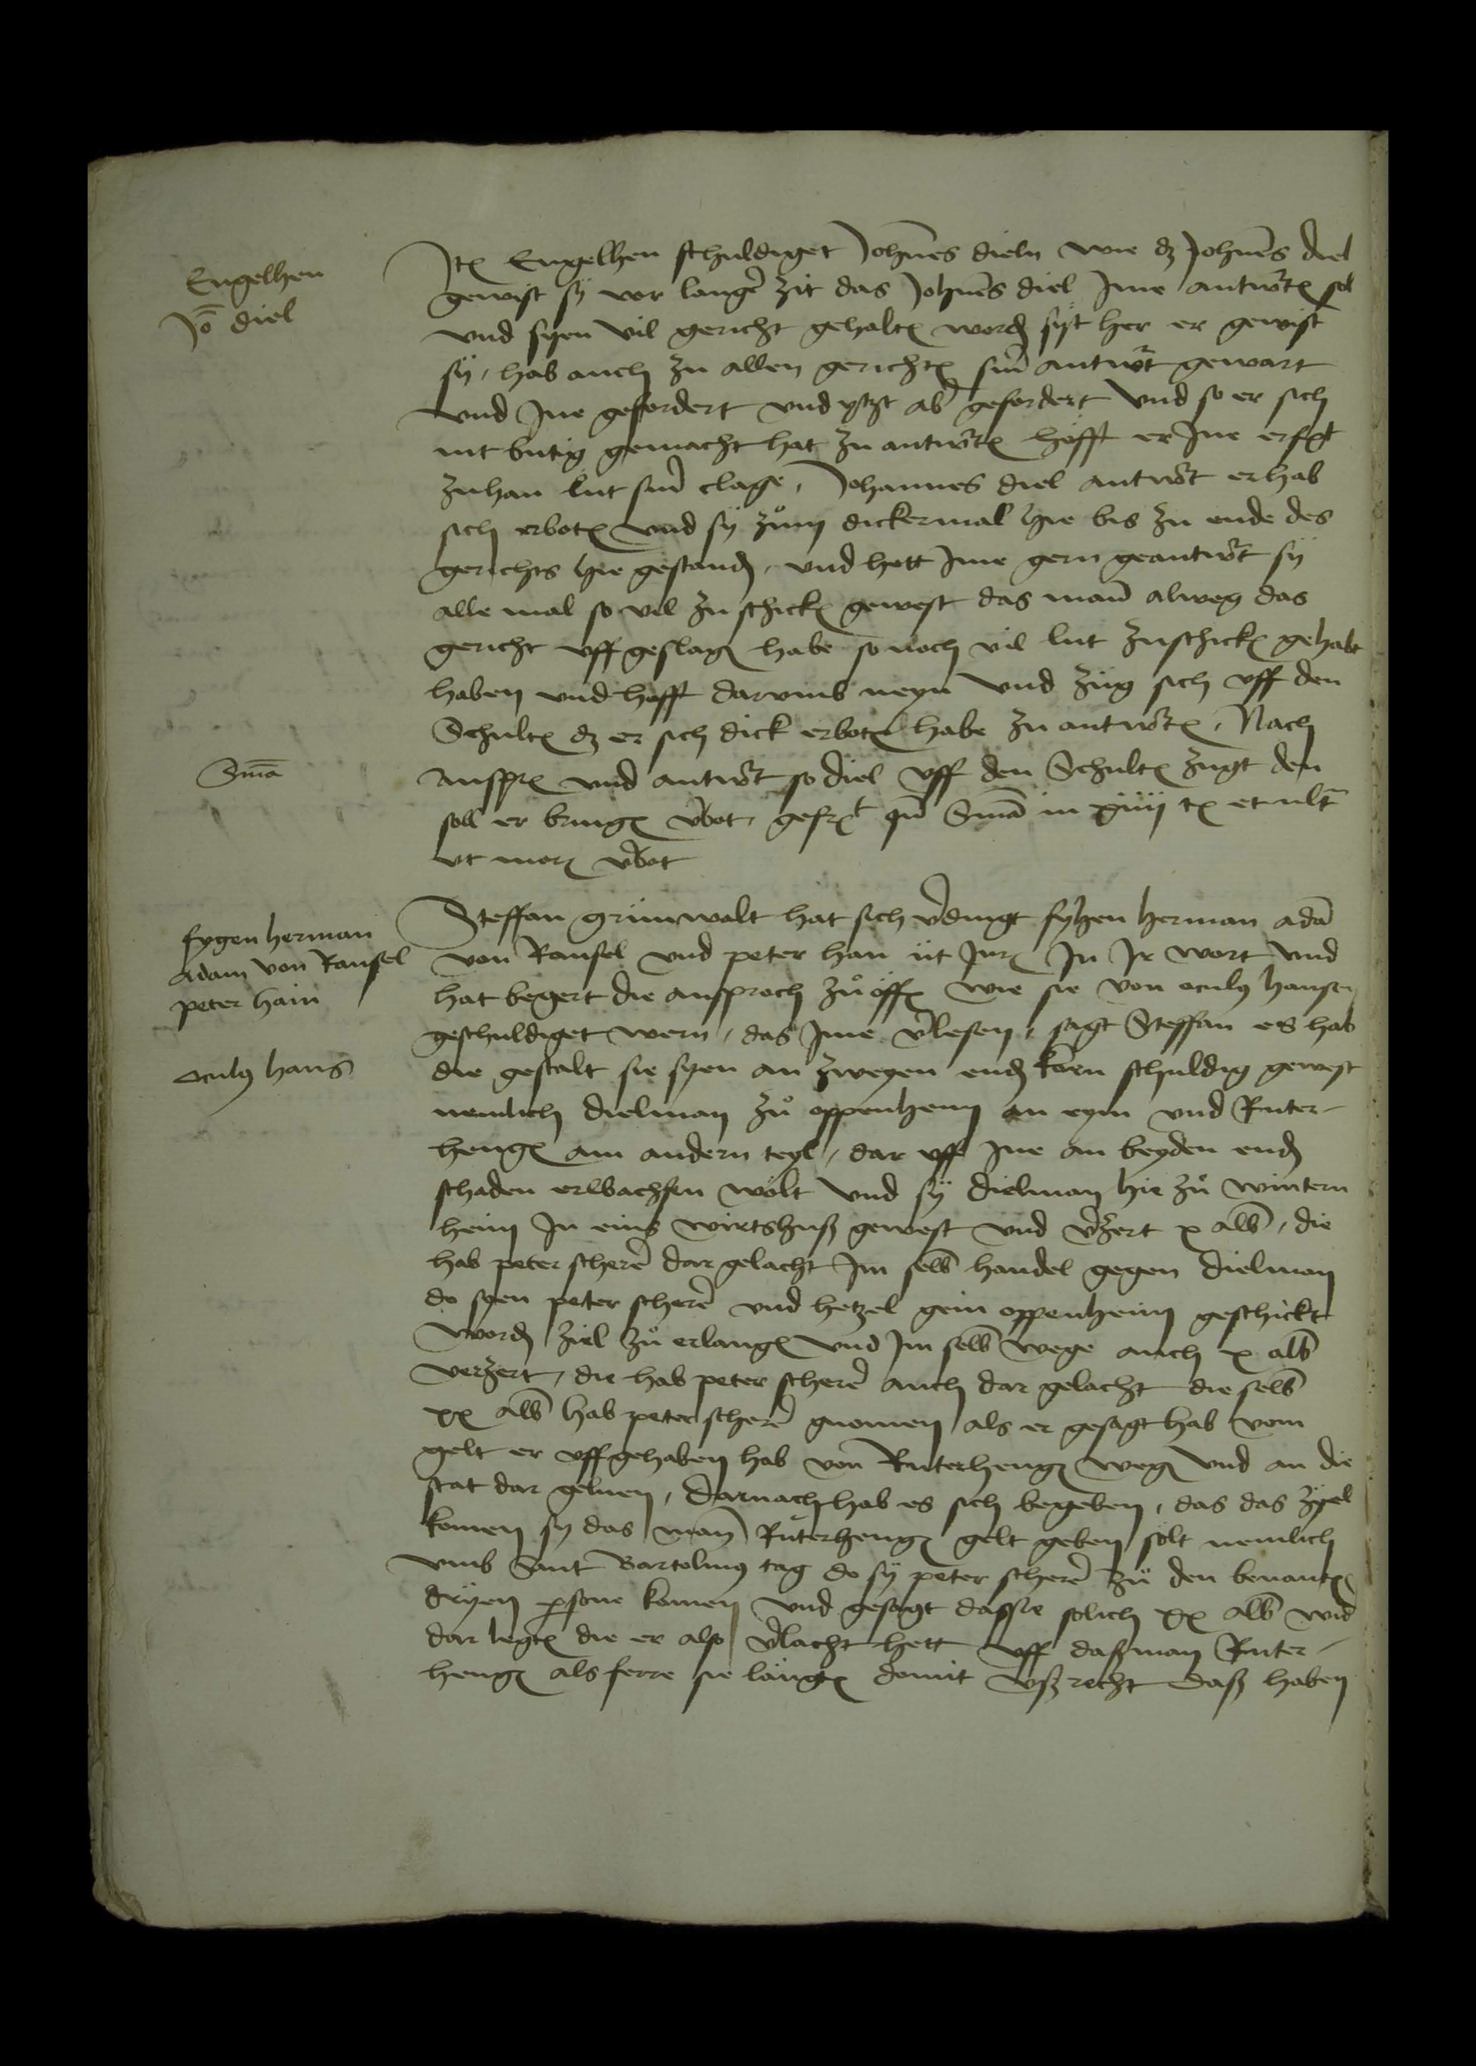 Engelhen
Jo diel
Itẽ Engelhen schuldiget Johnes dieln wie dz Johnes diel
gewist sy vor langer zit das Johnes diel Ime antwortẽ sol
vnd syen vil gericht gehaltẽ wordẽ syt her er gewist
sy, hab auch zu allen gerichtẽ siner antwort gewart
vnd Ine gefordert vnd ytzt aber gefordert vnd so er sich
nit butig gemacht hat zu antwortẽ hofft er Ine
zuhan lut siner clage, Johannes diel antwort er hab
sich erbotẽ vnd sy zum dickermal hie bis zu ende des
gerichts hie gestandẽ, vnd hett Ime gern geantwort sy
alle mal so vil zuschickẽ gewest das man alweg das
gericht vff geslagẽ habe so noch vil lut zuschickẽ gehabt
haben vnd hofft darvmb neyn vnd zug sich vff den
Schultẽ dz er sich dick erbotẽ habe zu antwortẽ, Nach
Sma
ansprẽ vnd antwort so diel vff den Schultẽ zugt den
soll er bringẽ vbot, gefrẽt qn Sma in xiiij tẽ et ult
vt morẽ vbot
fygen herman
Adam von Ransel
peter hain
Steffan grunwalt hat sich verdingt fyhen herman ada
von Ransel vnd peter han ut Jurẽ In Ir wort vnd
hat begert die ansproch zu offẽ wie sie von oculus hansen
geschuldiget wern, das Ime verlesen, sagt Steffan es hab
oculus hans
die gestalt sie syen an zweyen endẽ korn schuldig gewest
nemlich dielman zu oppenheim an eym vnd Ruter-
hengẽ am andern teyl, dar vff Ine an beyden endẽ
schaden erwachsen wolt vnd sy dielman hie zu wintern
heim In eins wirtshuß gewest vnd verzert x alb, die
hab peter scherer dar gelacht Im selben handel gegen dielman
do syen peter scherer vnd hetzel gein oppenheim geschickt
wordẽ ziel zu erlangẽ vnd Im selben wege auch x alb
verzert, die hab peter scherer auch dar gelacht die selben
xx alb hab peter scherer gnomen als er gesagt hab vom
gelt er vffgehaben hab von Ruterhengẽ wegẽ vnd an die
stat dar geluen, Darnach hab es sich begeben, das das zyel
komen sy das man Ruterhengẽ gelt geben solt nemlich
vmb Sant Bartolmus tag do sy peter scherer zu den benantẽ
dryen psone komen vnd gesagt dassie solich xx alb wider
dar legtẽ die er also verlacht hett vff daßman Ruter-
hengẽ als ferre sie langtẽ domit vßrecht daß haben